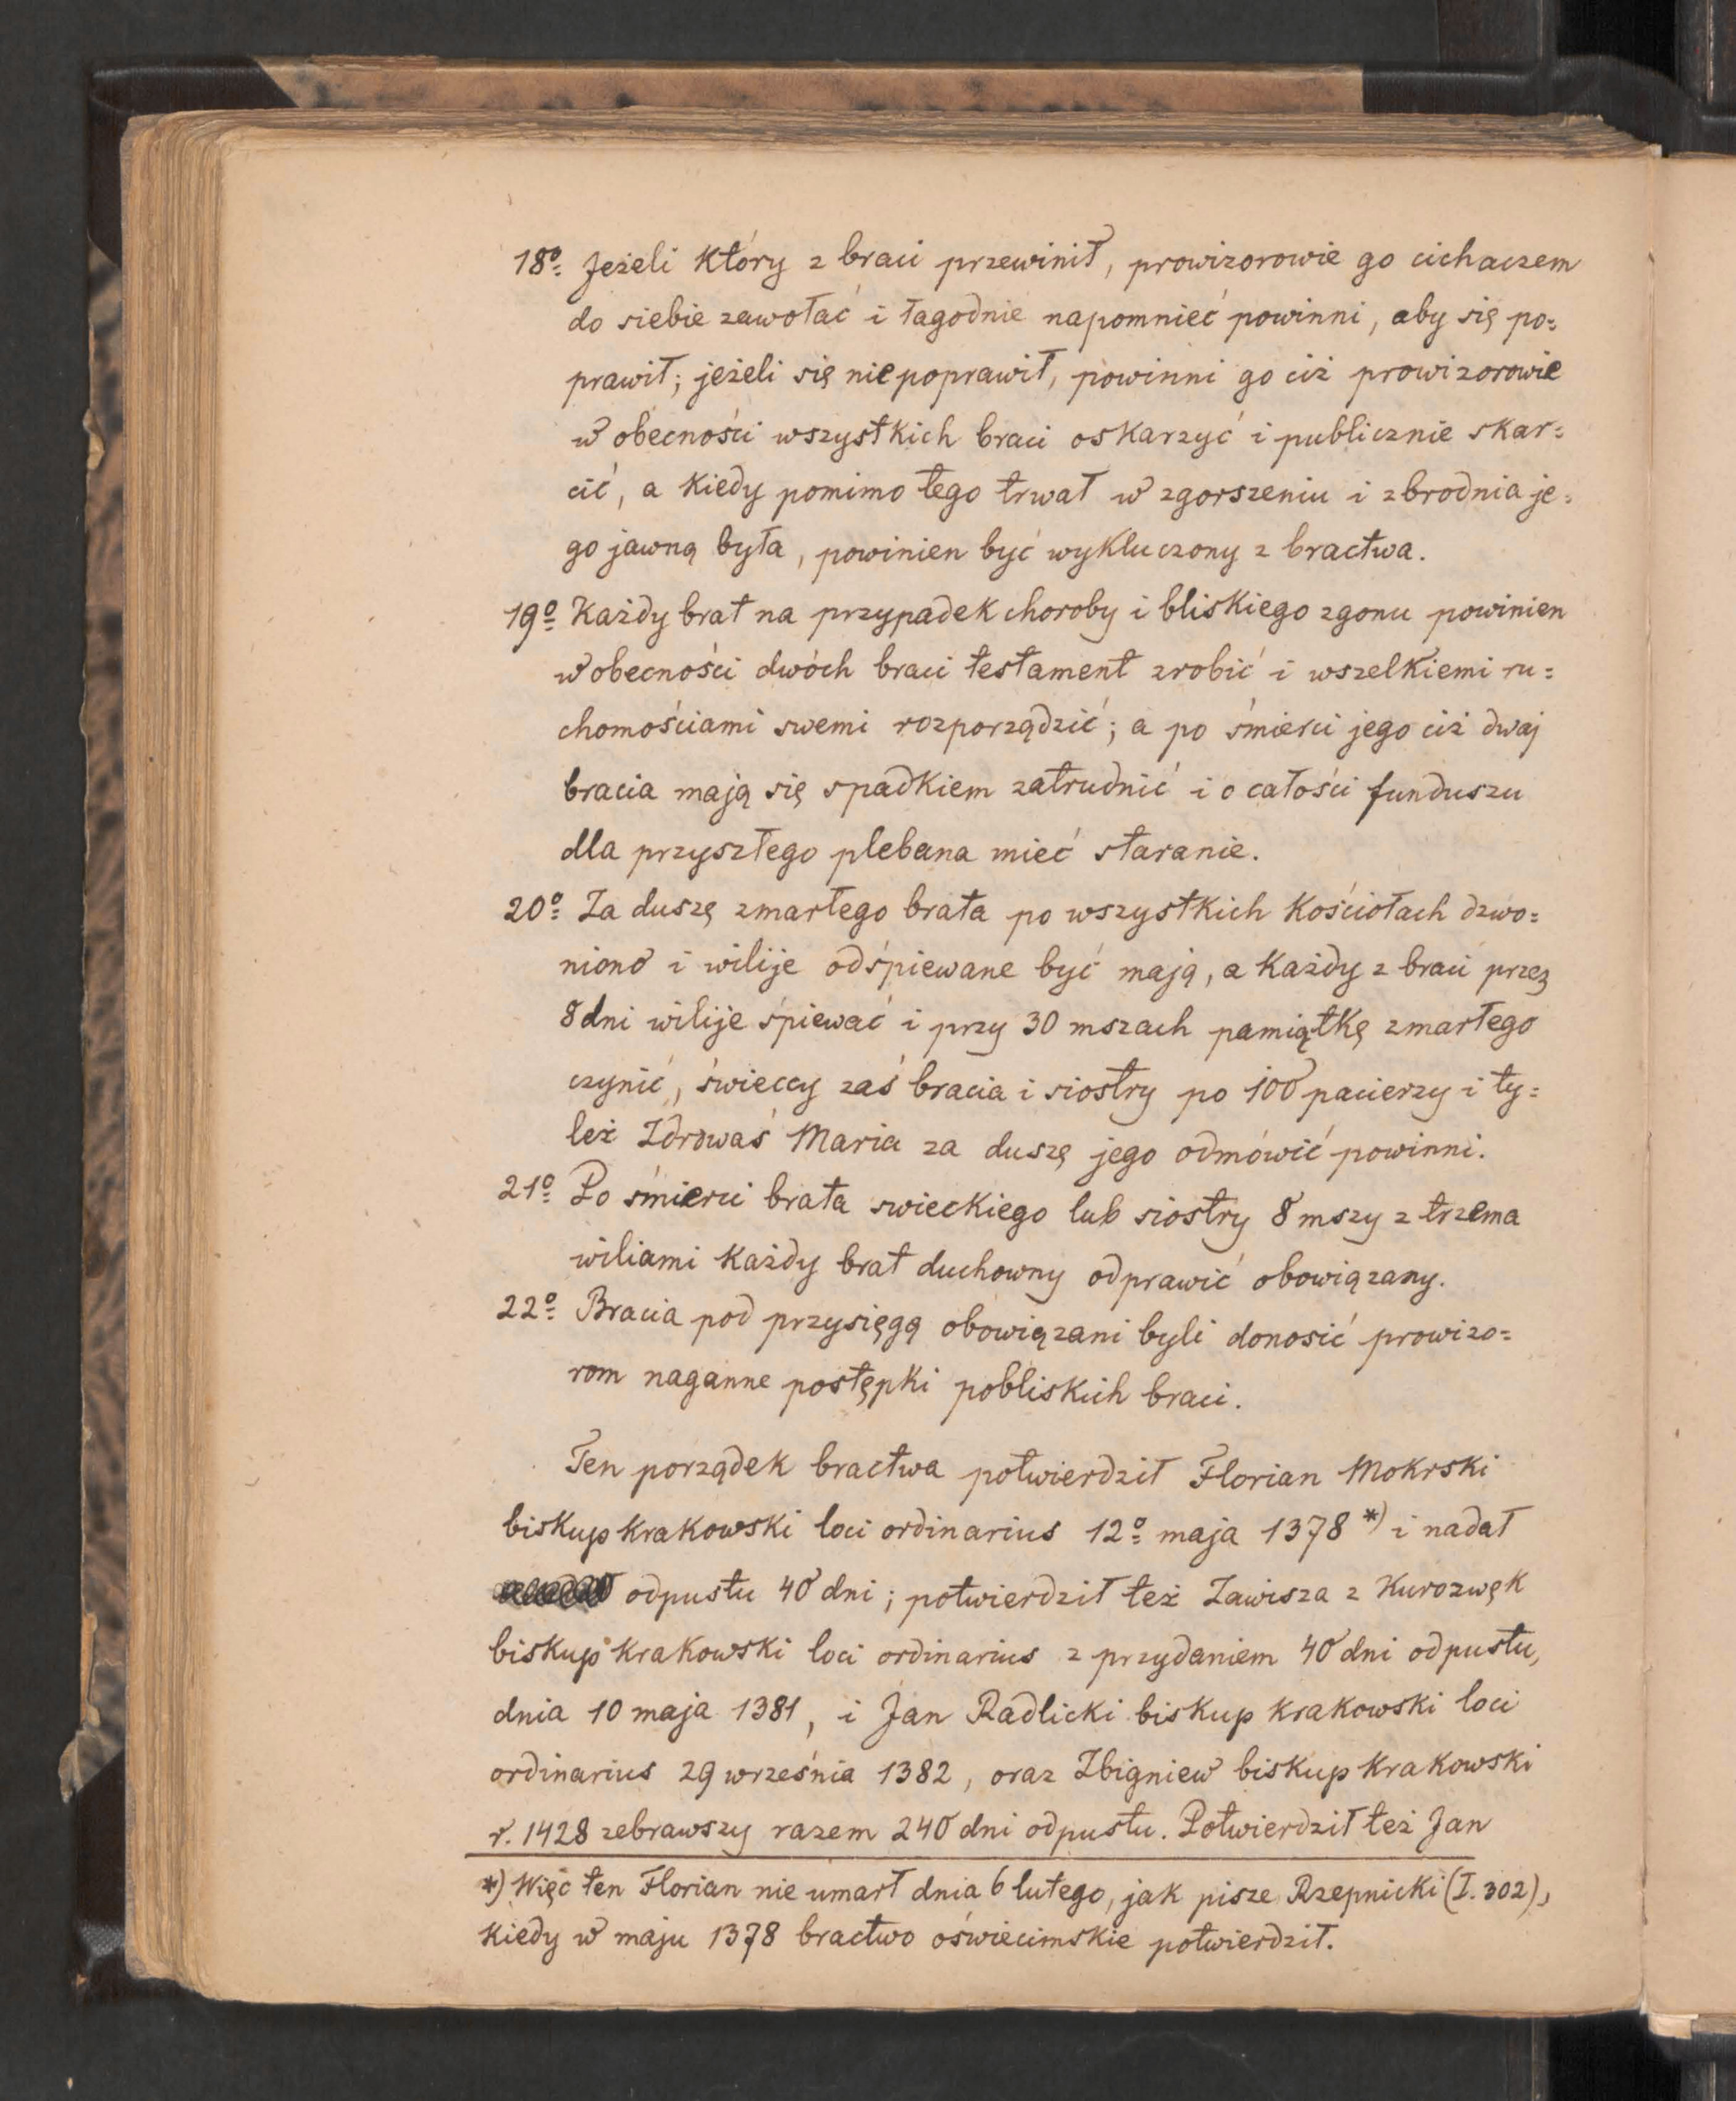 18º Jeżeli który z braci przewinił, prowizorowie go cichaczem
do siebie zawołać i łagodnie napomnieć powinni, aby się po=
prawił; jeżeli się nie poprawił, powinni go ciż prowizorowie
w obecności wszystkich braci oskarzyć i publicznie skar=
cić, a kiedy pomimo tego trwał w zgorszeniu i zbrodnia je=
go jawną była, powinien być wykluczony z bractwa.
19º Każdy brat na przypadek choroby i bliskiego zgonu powinien
w obecności dwóch braci testament zrobić i wszelkiemi ru=
chomościami swemi rozporządzić; a po śmierci jego ciż dwaj
bracia mają się spadkiem zatrudnić i o całości funduszu
dla przyszłego plebana mieć staranie.
20º Za duszę zmarłego brata po wszystkich kościołach dzwo=
niono i wilije odśpiewane być mają, a każdy z braci przez
8 dni wilije śpiewać i przy 30 mszach pamiątkę zmarłego
czynić, świeccy zaś bracia i siostry po 100 pacierzy i ty=
leż Zdrowaś Maria za duszę jego odmówić powinni.
21º Po śmierci brata swieckiego lub siostry 8 mszy z trzema
wiliami każdy brat duchowny odprawić obowiązany.
22º Bracia pod przysięgą obowiązani byli donosić prowizo=
rom naganne postępki pobliskich braci.
Ten porządek bractwa potwierdził Florian Mokrski
biskup krakowski loci ordinarius 12º maja 1378 *) i nadał
odpustu 40 dni; potwierdził też Zawisza z Kurozwęk
biskup krakowski loci ordinarius z przydaniem 40 dni odpustu,
dnia 10 maja 1381, i Jan Radlicki biskup krakowski loci
ordinarius 29 września 1382, oraz Zbigniew biskup krakowski
r. 1428 zebrawszy razem 240 dni odpustu. Potwierdził też Jan
*) Więc ten Florian nie umarł dnia 6 lutego, jak pisze Rzepnicki (I. 302),
kiedy w maju 1378 bractwo oświecimskie potwierdził.